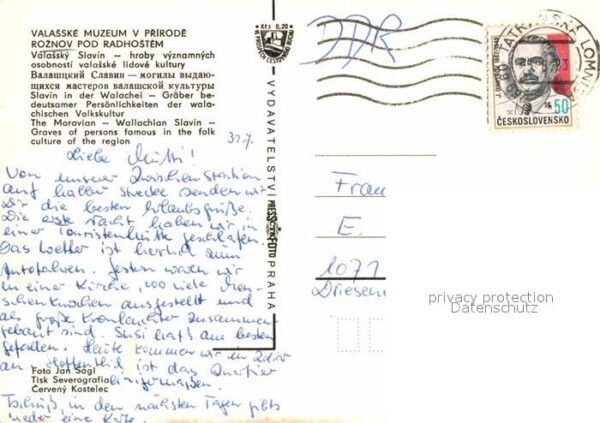 VALAŠSKÉ MUZEUM V PŘÍRODĚ
ROŽNOV POD RADHOŠTĚM
Valašský Slavín – hroby významných
osobností valašské lidové kultury
Валашцкий Славин – могилы выдаю-
щихся мастеров валашской культуры
Slavín in der Walachei – Gräber be-
deutsamer Persönlichkeiten der wala-
chischen Volkskultur
The Moravian – Wallachian Slavín –
Graves of persons famous in the folk
culture of the region
31.7.
Liebe Mutti!
Von unserer Zwischenstation
auf halber Strecke senden wir
Dir die besten Urlaubsgrüße.
Die erste Nacht haben wir in
einer Touristenhütte geschlafen.
Das Wetter ist herrlich zum
Autofahren. Gestern waren wir
in einer Kirche, wo viele Men-
schenknochen ausgestellt und
als große Kronleuchter zusammen-
gebaut sind. Susi hat's am besten
gefallen. Heute kommen wir in
an. Hoffentlich ist das Quartier
einigermaßen.
Tschüß, in den nächsten Tagen gibts
wieder eine Karte.
Foto Jan Ságl
Tisk Severografia
Červený Kostelec
Kčs 0,20
VYDAVATELSTVÍ PRESSFOTO PRAHA
DDR
TATRANSKÁ LOMNICA
J. DIMITROV 1882-1949
50
ČESKOSLOVENSKO
Frau
E.
1071
Driesene
privacy protection
Datenschutz